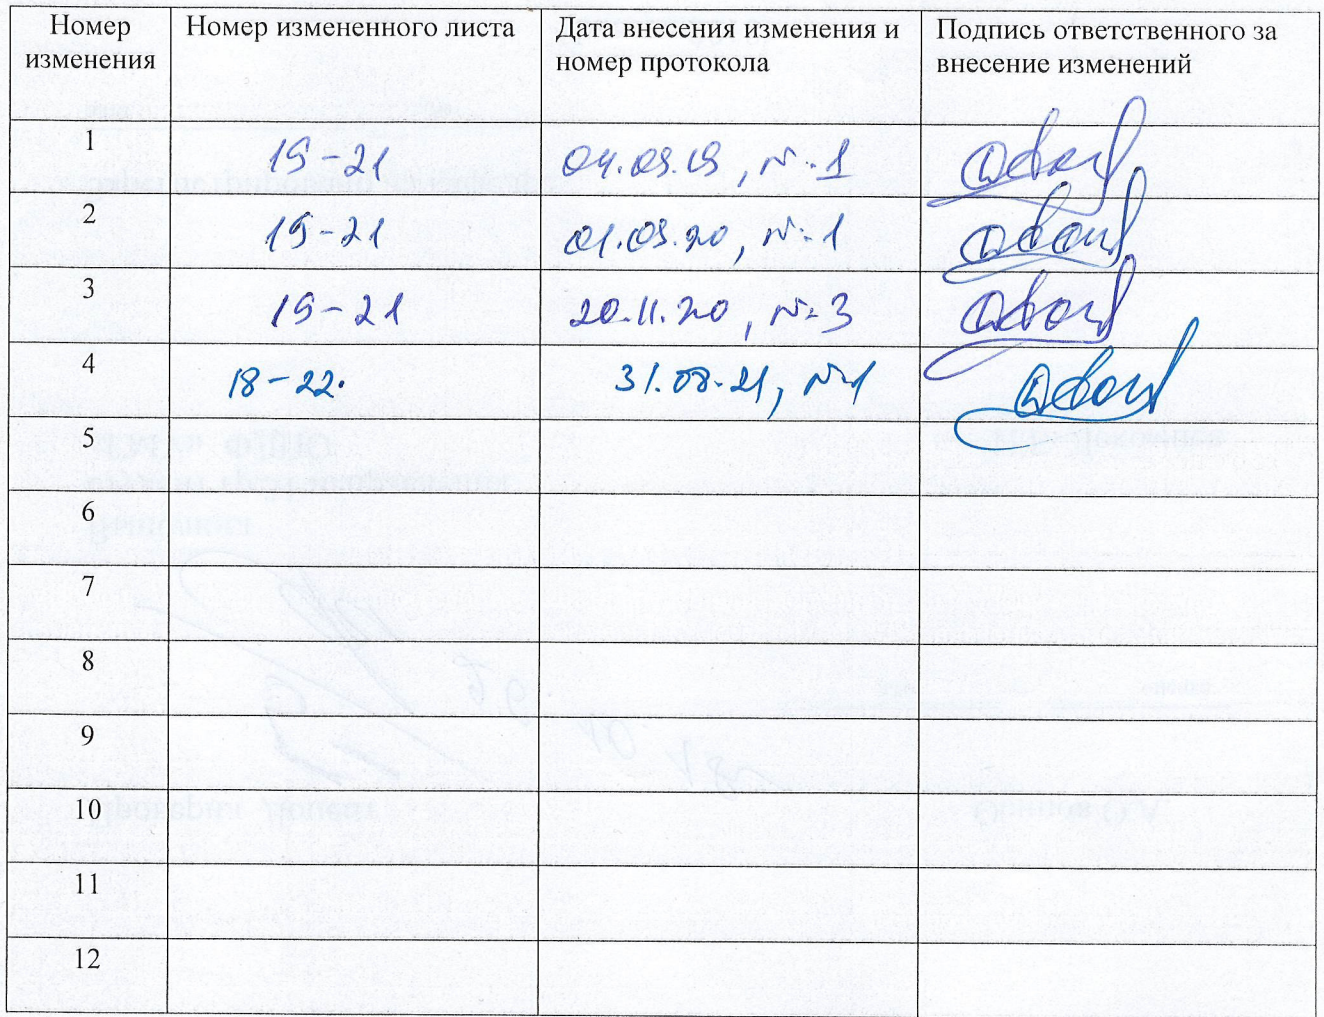 Номер изменения Номер измененного листа Дата внесения изменения и номер протокола Подпись ответственного за внесение изменений
1 19-21 04.09.19, №1
2 19-21 01.09.20, №1
3 19-21 20.11.20, №3
4 18-22. 31.08.21, №1
5
6
7
8
9
10
11
12